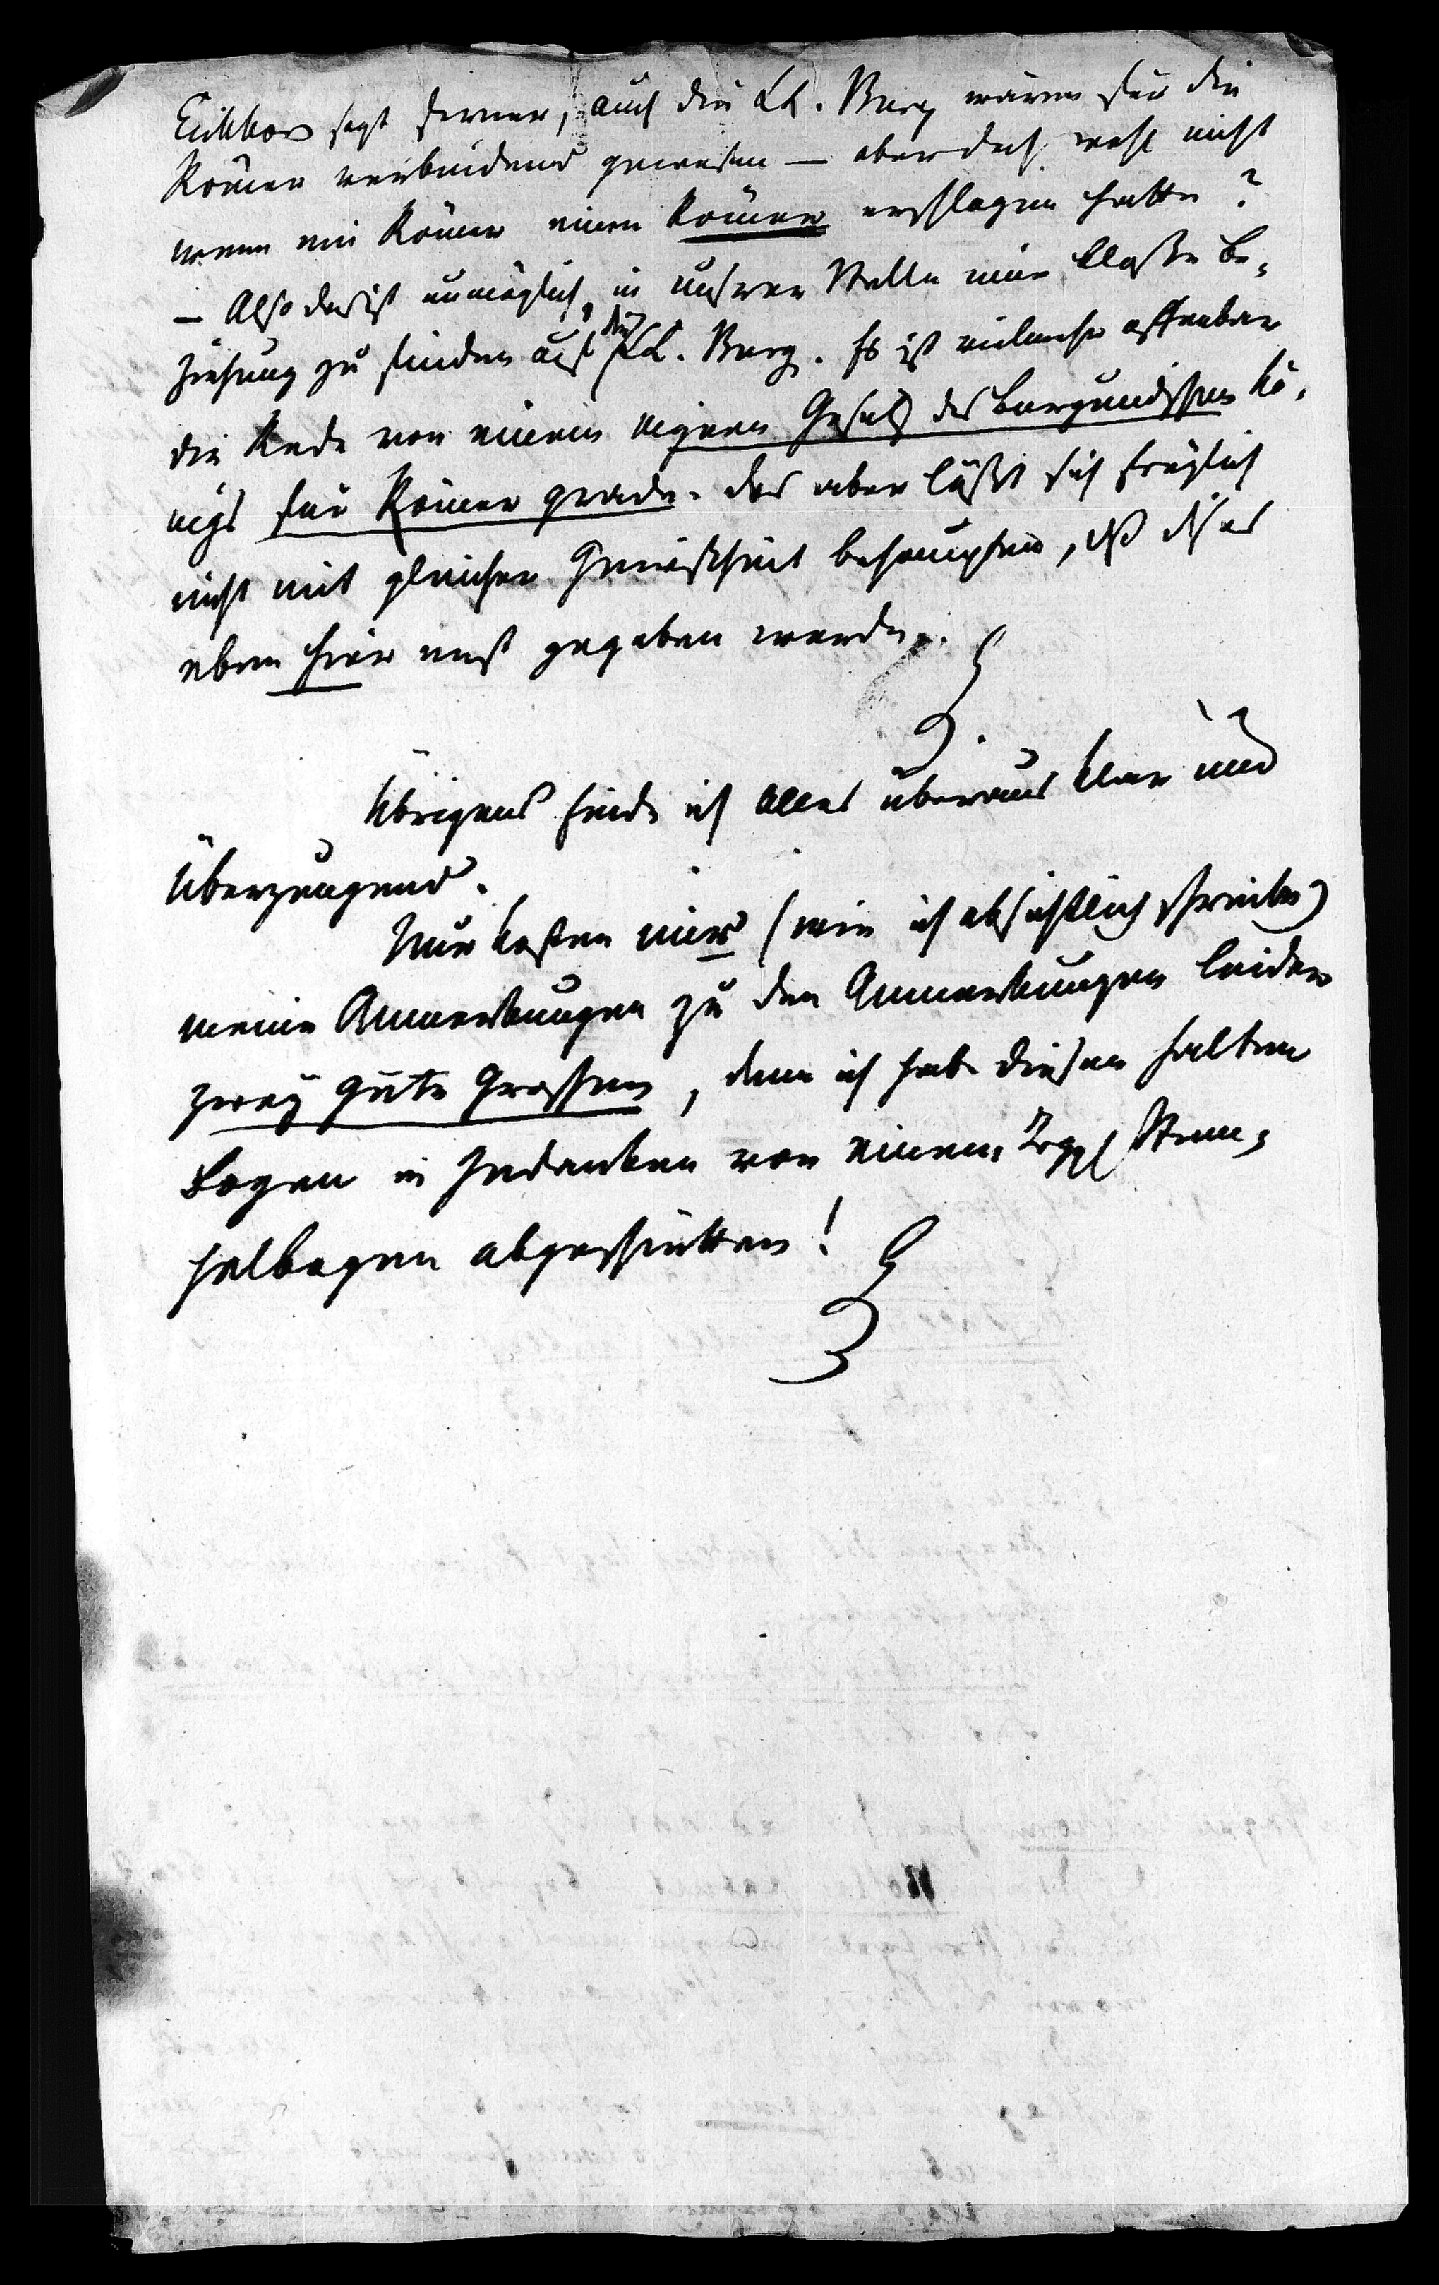 Eichhorn sagt ferner, auch die LL. Burg. wären für die
Römer verbindend gewesen — aber doch wohl nicht
wenn ein Römer einen Römer erschlagen hatte?
— Also das ist unmöglich, in unsrer Stelle eine bloße Be-
ziehung zu finden auf die LL. Burg. Es ist vielmehr offenbar
die Rede von einem eignen Gesetz des burgundischen Kö-
nigs für Römer grade. Das aber läßt sich freylich
nicht mit gleicher Gewißheit behaupten, daß dieses
eben hier erst gegeben werde.
Übrigens finde ich Alles überaus klar und
überzeugend.
Nur kosten mir (wie ich absichtlich schreibe)
meine Anmerkungen zu den Anmerkungen leider
zwey gute Groschen, denn ich habe diesen halben
Bogen in Gedanken von einem Stem-
pelbogen abgeschnitten!